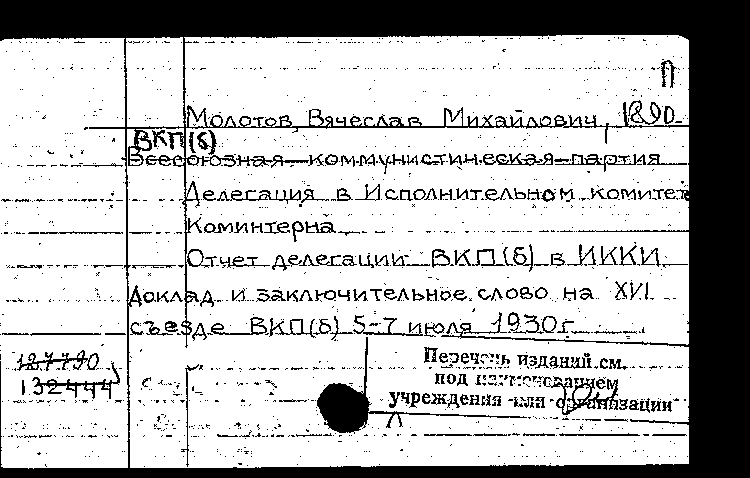 П
Молотов, Вячеслав Михайлович, 1890-
ВКП(б)
Всесоюзная коммунистическая партия
Делегация в Исполнительном комитет
Коминтерна.
Отчет делегации ВКП(б) в ИККИ.
Доклад и заключительное слово на XVI
съезде ВКП(б) 5-7 июля 1930г.
127790
132444
Перечень изданий см.
под наименованием
учреждения или организации